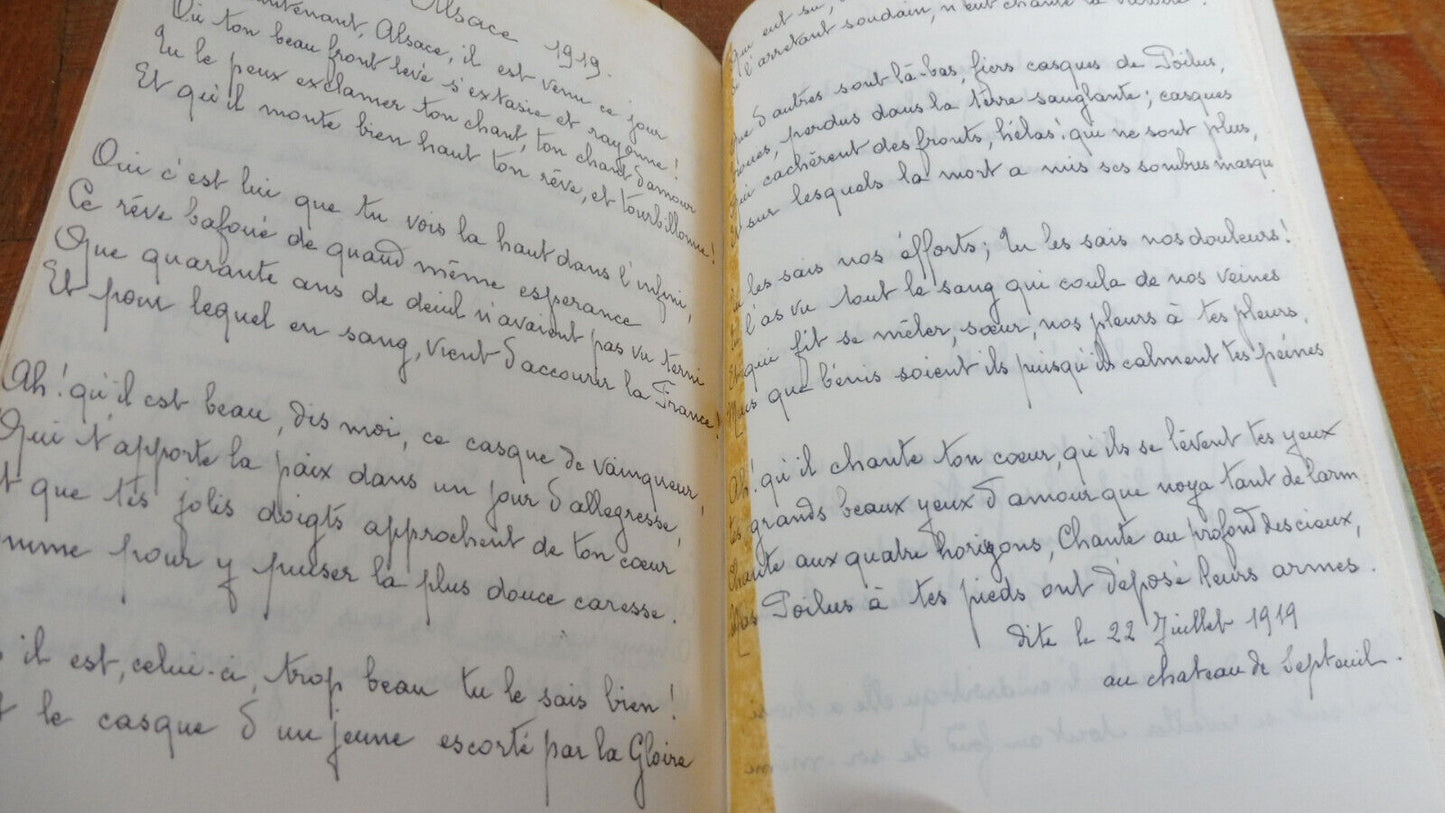 Alsace 1919.
Maintenant, Alsace, il est venu ce jour
Où ton beau front levé s'extasie et rayonne!
Tu le peux exclamer ton chant, ton chant d'amour
Et qu'il monte bien haut ton rêve, et tourbillonne!
Oui c'est lui que tu vois la haut dans l'infini,
Ce rêve bafoué de quand même esperance
Que quarante ans de deuil n'avaient pas vu terni
Et pour lequel en sang, vient d'accourir la France!
Ah! qu'il est beau, dis moi, ce casque de vainqueur,
Qui t'apporte la paix dans un jour d'allegresse,
Et que tes jolis doigts approchent de ton cœur
comme pour y puiser la plus douce caresse.
il est, celui-ci, trop beau tu le sais bien!
le casque d'un jeune escorté par la Gloire
Qui eut su,
s'arrêtant soudain, n'eut chanté la
Que d'autres sont là-bas, fiers casques de Poilus,
perdus dans la terre sanglante; casques
Qui cachèrent des fronts, hélas! qui ne sont plus,
Et sur lesquels la mort a mis ses sombres masqu
Tu les sais nos éfforts; Tu les sais nos douleurs!
Tu l'as vu tout le sang qui coula de nos veines
Et qui fit se mêler, sœur, nos pleurs à tes pleurs,
Mais que bénis soient ils puisqu'ils calment tes peines
Ah! qu'il chante ton coeur, qu'ils se lèvent tes yeux
tes grands beaux yeux d'amour que noya tant de larm
Chante aux quatre horizons, Chante au profond des cieux,
Mes Poilus à tes pieds ont déposé leurs armes.
dite le 22 Juillet 1919
au chateau de Septeuil.